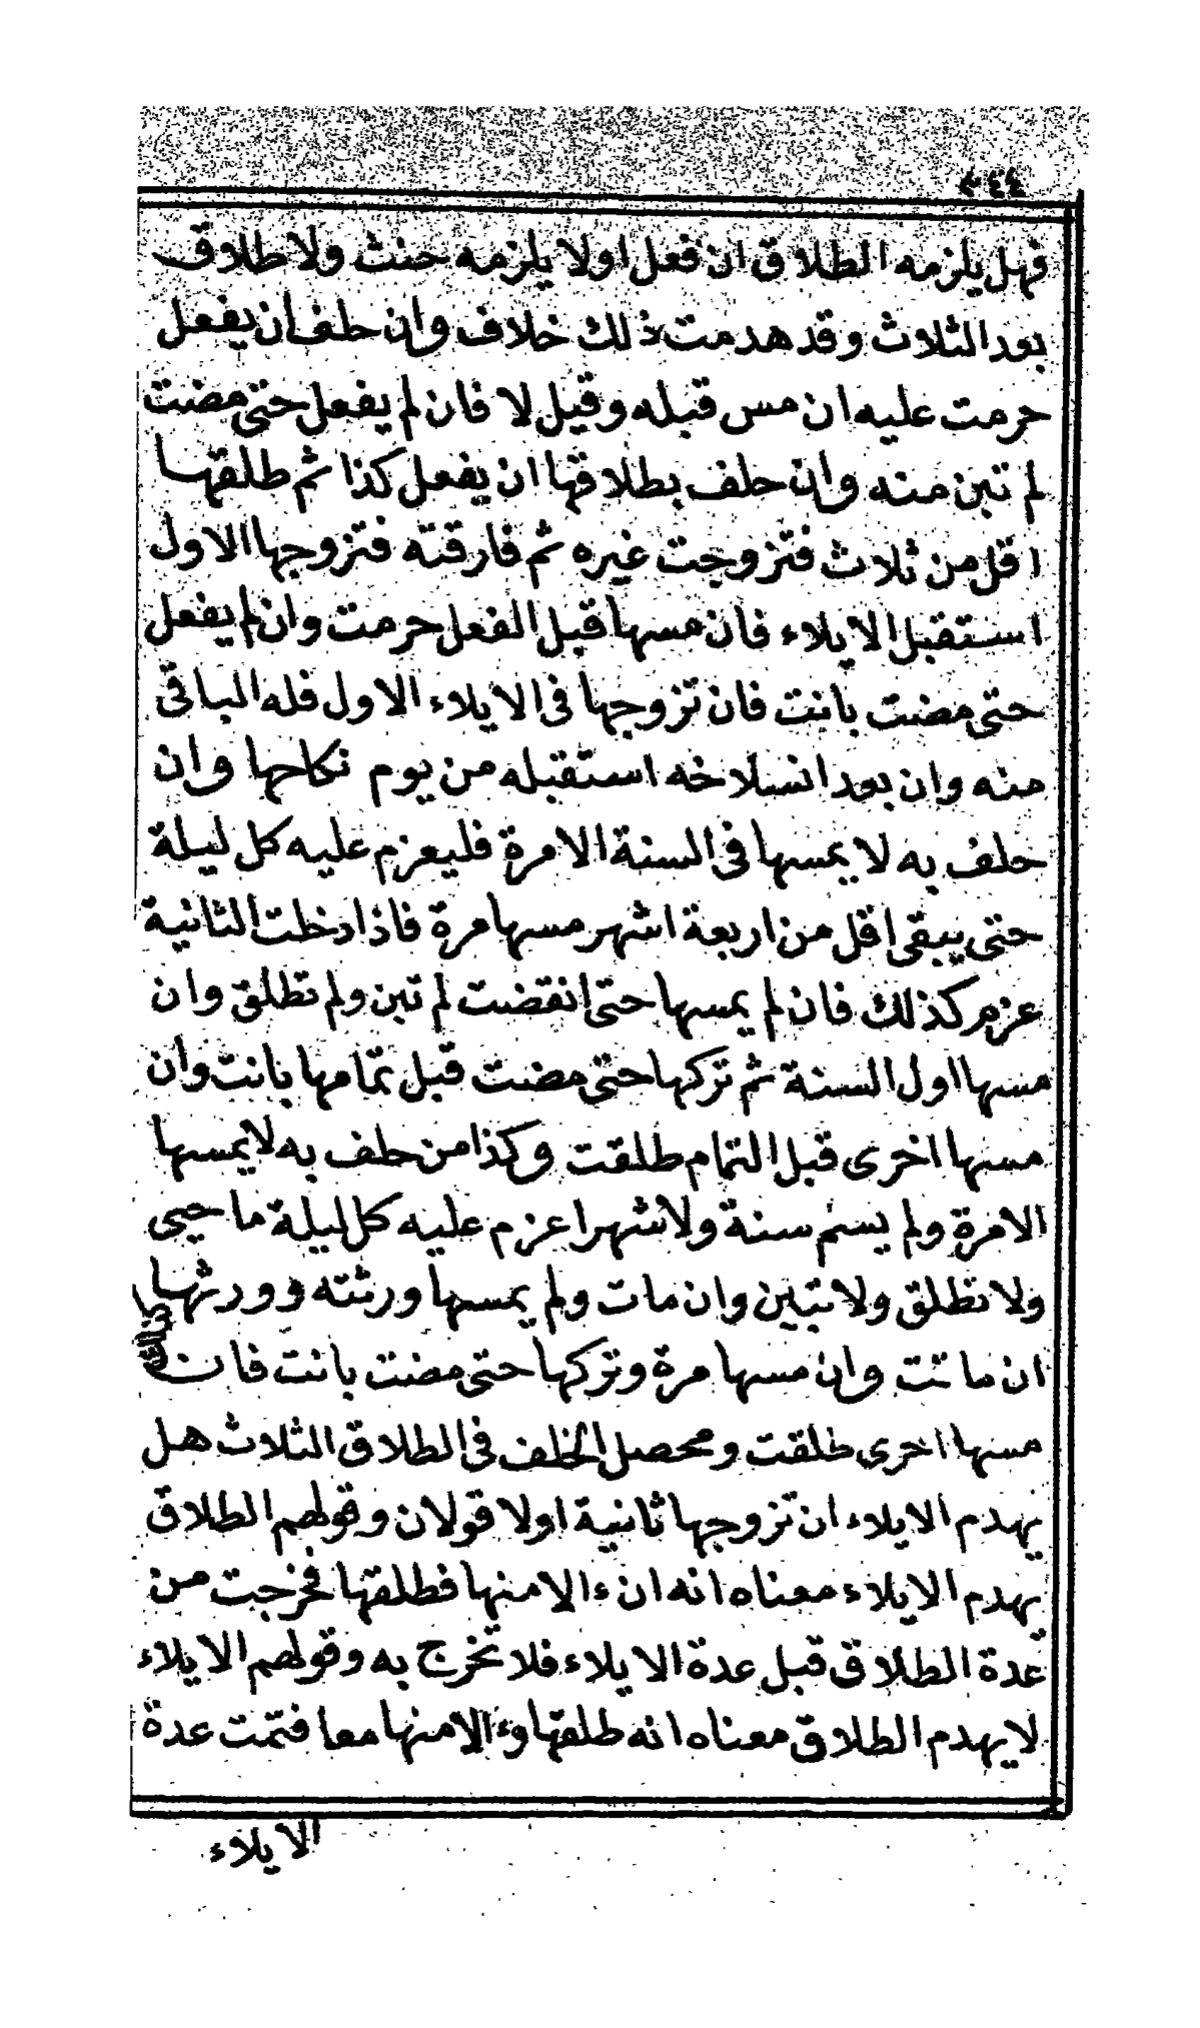 ٣٤٤
فهل يلزمه الطلاق ان فعل اولا يلزمه حنث ولا طلاق
بعد الثلاث وقد هدمت ذلك خلاف وان حلف ان يفعل
حرمت عليه ان مس قبله وقيل لا فان لم يفعل حتى مضت
لم تبن منه وان حلف بطلاقها ان يفعل كذا ثم طلقها
اقل من ثلاث فتزوجت غيره ثم فارقته فتزوجها الاول
استقبل الايلاء فان مسها قبل الفعل حرمت وان لم يفعل
حتى مضت بانت فان تزوجها فى الايلاء الاول فله الباقى
منه وان بعد انسلاخه استقبله من يوم نكاحها وان
حلف به لا يمسها فى السنة الا مرة فليعزم عليه كل ليلة
حتى يبقى اقل من اربعة اشهر مسها مرة فاذا دخلت الثانية
عزم كذلك فان لم يمسها حتى انقضت لم تبن ولم تطلق وان
مسها اول السنة ثم تركها حتى مضت قبل تمامها بانت وان
مسها اخرى قبل التمام طلقت وكذا من حلف به لا يمسها
الا مرة ولم يسم سنة ولا شهرا عزم عليه كل ليلة ما حيى
ولا تطلق ولا تبين وان مات ولم يمسها ورثته وورثها
كذلك
ان ماتت وان مسها مرة وتركها حتى مضت بانت فان
مسها اخرى طلقت ومحصل الخلف فى الطلاق الثلاث هل
يهدم الايلاء ان تزوجها ثانية اولا قولان وقولهم الطلاق
يهدم الايلاء معناه انه ان ءالا منها فطلقها فخرجت من
عدة الطلاق قبل عدة الايلاء فلا تخرج به وقولهم الايلاء
لا يهدم الطلاق معناه انه طلقها وءالا منها معا فتمت عدة
الايلاء